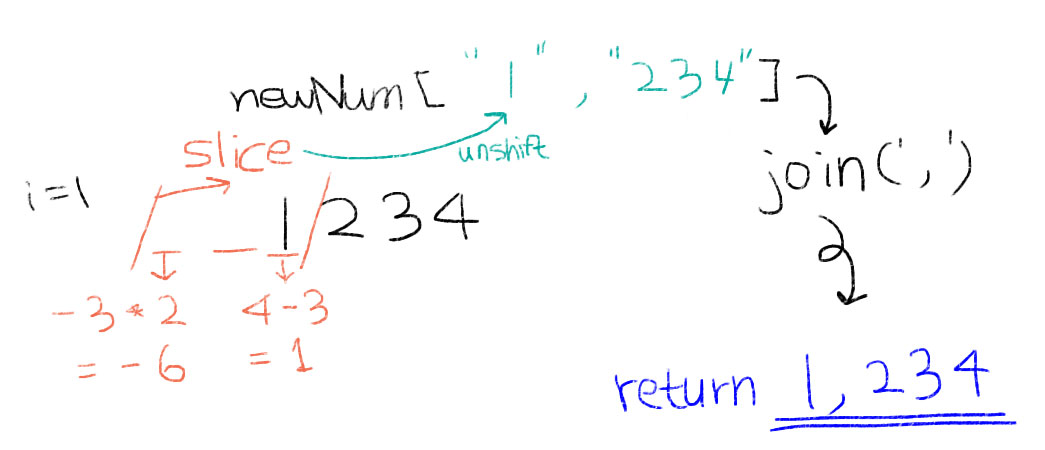 newNum [ "1" , "234" ]
slice
unshift
join(',')
i=1
1 2 3 4
-3 * 2
= -6
4-3
= 1
return 1,234